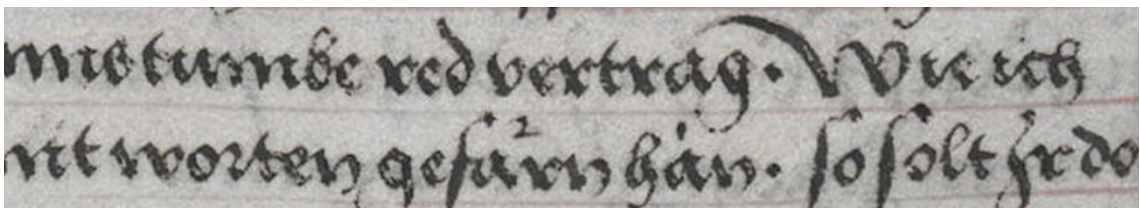 tumbe red vertrag. Wie ich
nt worten gefarn han. so solt Ir do